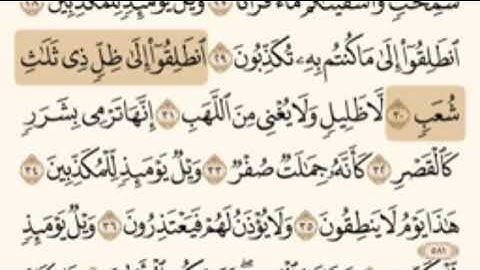 شَـٰمِخَـٰتٍ وَأَسْقَيْنَـٰكُم مَّآءً فُرَاتًا ٢٧ وَيْلٌ يَوْمَئِذٍ لِّلْمُكَذِّبِينَ ٢٨
ٱنطَلِقُوٓا۟ إِلَىٰ مَا كُنتُم بِهِۦ تُكَذِّبُونَ ٢٩ ٱنطَلِقُوٓا۟ إِلَىٰ ظِلٍّ ذِى ثَلَـٰثِ
شُعَبٍ ٣٠ لَّا ظَلِيلٍ وَلَا يُغْنِى مِنَ ٱللَّهَبِ ٣١ إِنَّهَا تَرْمِى بِشَرَرٍ
كَٱلْقَصْرِ ٣٢ كَأَنَّهُۥ جِمَـٰلَتٌ صُفْرٌ ٣٣ وَيْلٌ يَوْمَئِذٍ لِّلْمُكَذِّبِينَ ٣٤
هَـٰذَا يَوْمُ لَا يَنطِقُونَ ٣٥ وَلَا يُؤْذَنُ لَهُمْ فَيَعْتَذِرُونَ ٣٦ وَيْلٌ يَوْمَئِذٍ
٥٨١